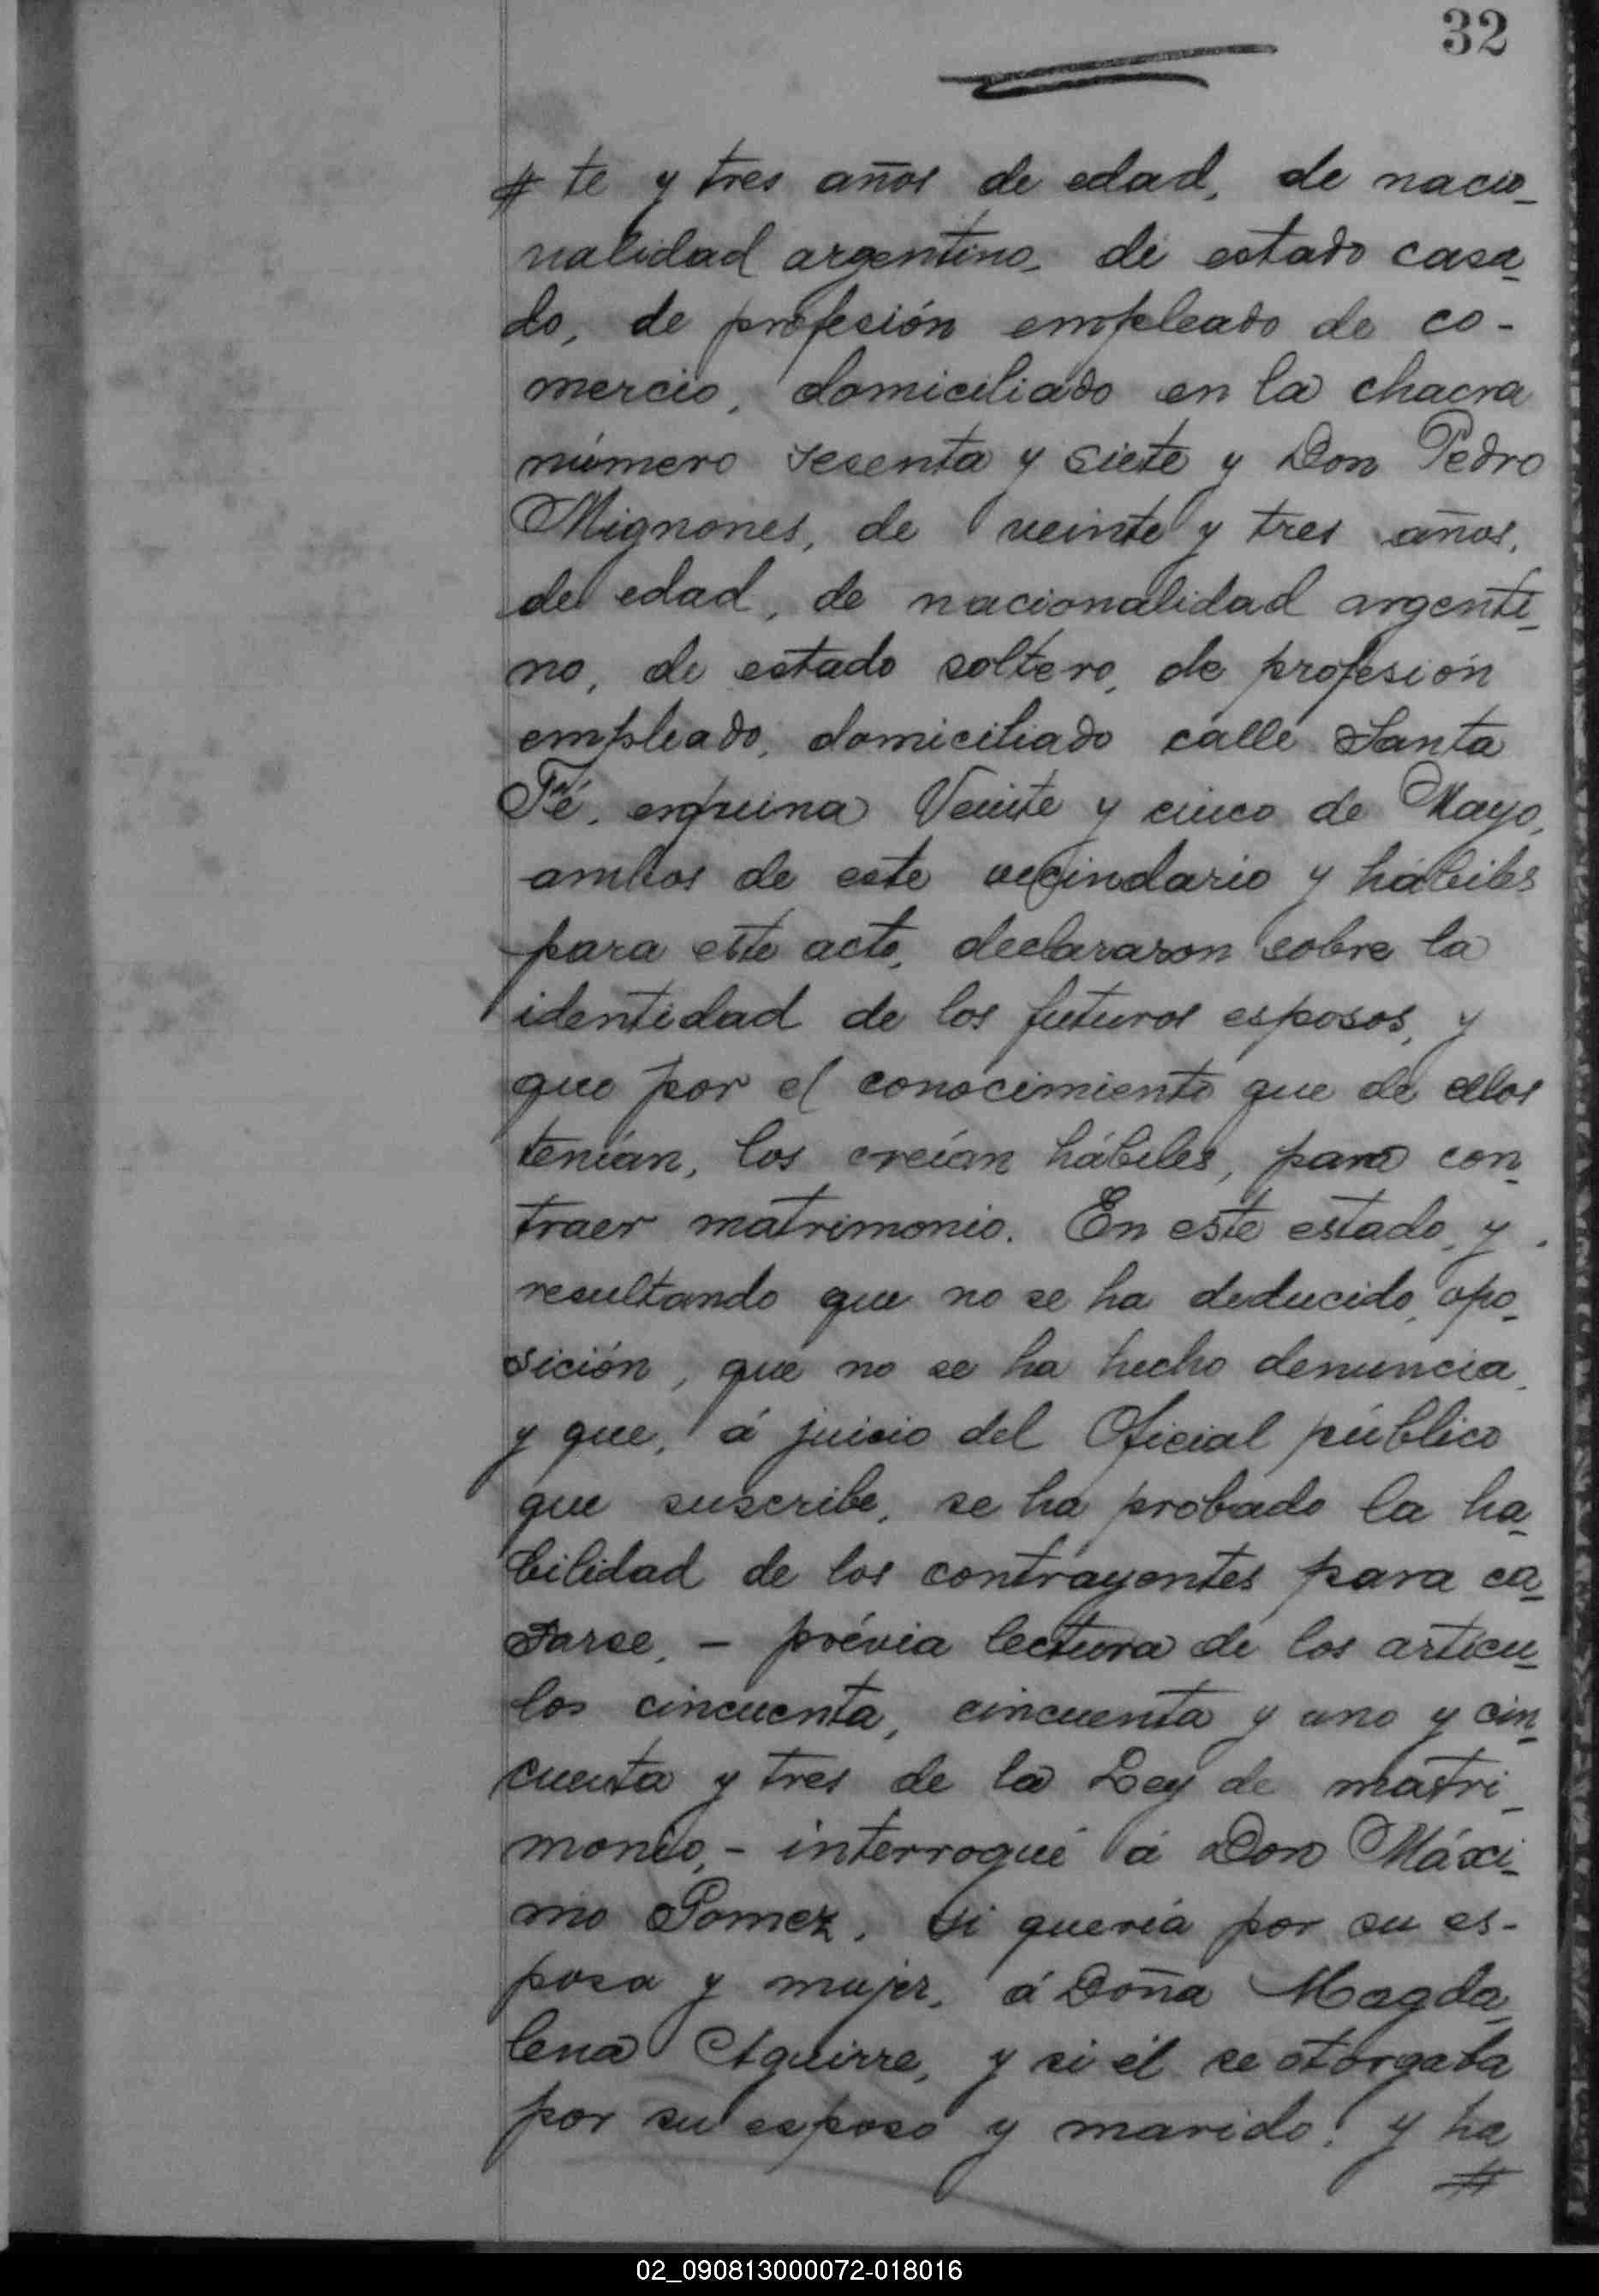 32
# te y tres años de edad, de nacio_
nalidad argentino, de estado casa_
do, de profesión empleado de co-
mercio, domiciliado en la chacra
número sesenta y siete y Don Pedro
Mignones, de veinte y tres años,
de edad, de nacionalidad argenti_
no, de estado soltero, de profesión
empleado, domiciliado calle Santa
Fé, esquina Veinte y cinco de Mayo,
ambos de este vecindario y hábiles
para este acto, declararon sobre la
identidad de los futuros esposos, y
que por el conocimiento que de ellos
tenían, los creían hábiles, para con_
traer matrimonio. En este estado, y
resultando que no se ha deducido, opo_
sición, que no se ha hecho denuncia,
y que, á juicio del Oficial público
que suscribe, se ha probado la ha_
bilidad de los contrayentes para ca_
sarse, - prévia lectura de los artícu_
los cincuenta, cincuenta y uno y cin_
cuenta y tres de la Ley de matri_
monio, - interrogué á Don Máxi_
mo Pomez, si quería por su es-
posa y mujer, á Doña Magda_
lena Aguirre, y si él se otorgaba
por su esposo y marido; y ha
#
02_090813000072-018016